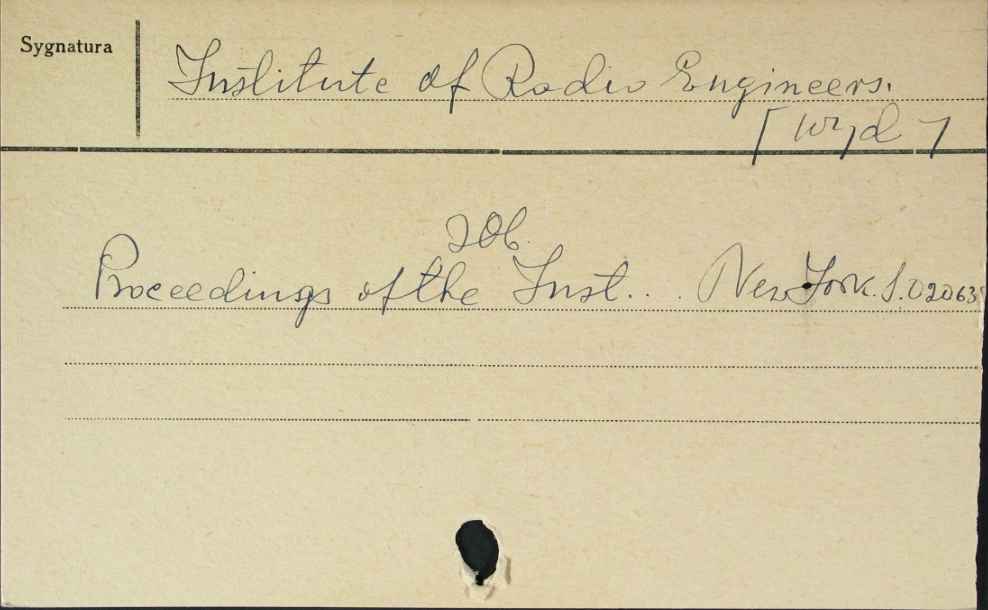 Sygnatura
Institute of Radio Engineers.
[wyd]
zob.
Proceedings of the Inst... New York. S.02063